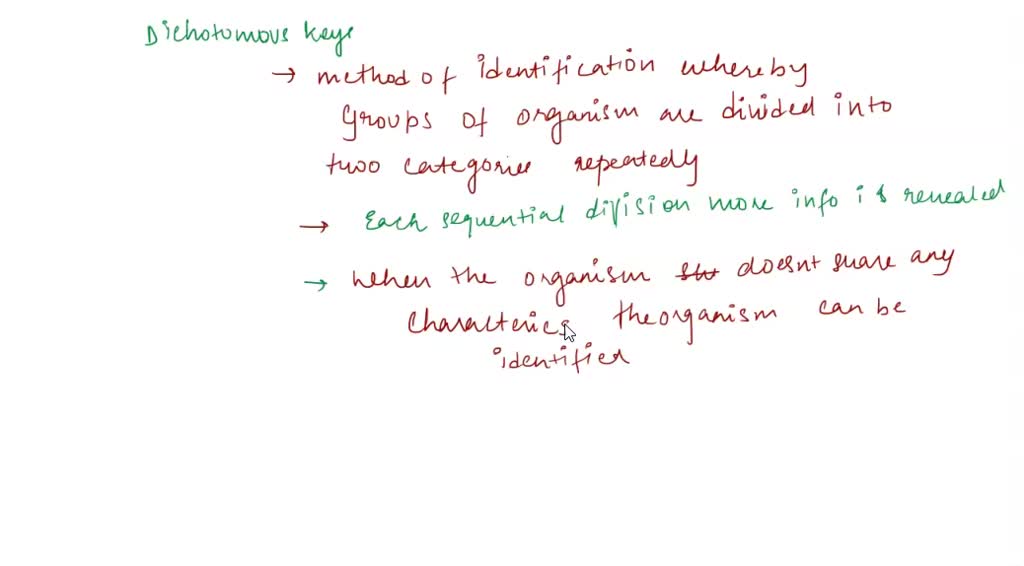 Dichotomous keys
→ method of identification whereby
groups of organism are divided into
two categories repeatedly
→ Each sequential division more info is revealed
→ when the organism doesnt share any
characterics the organism can be
identified